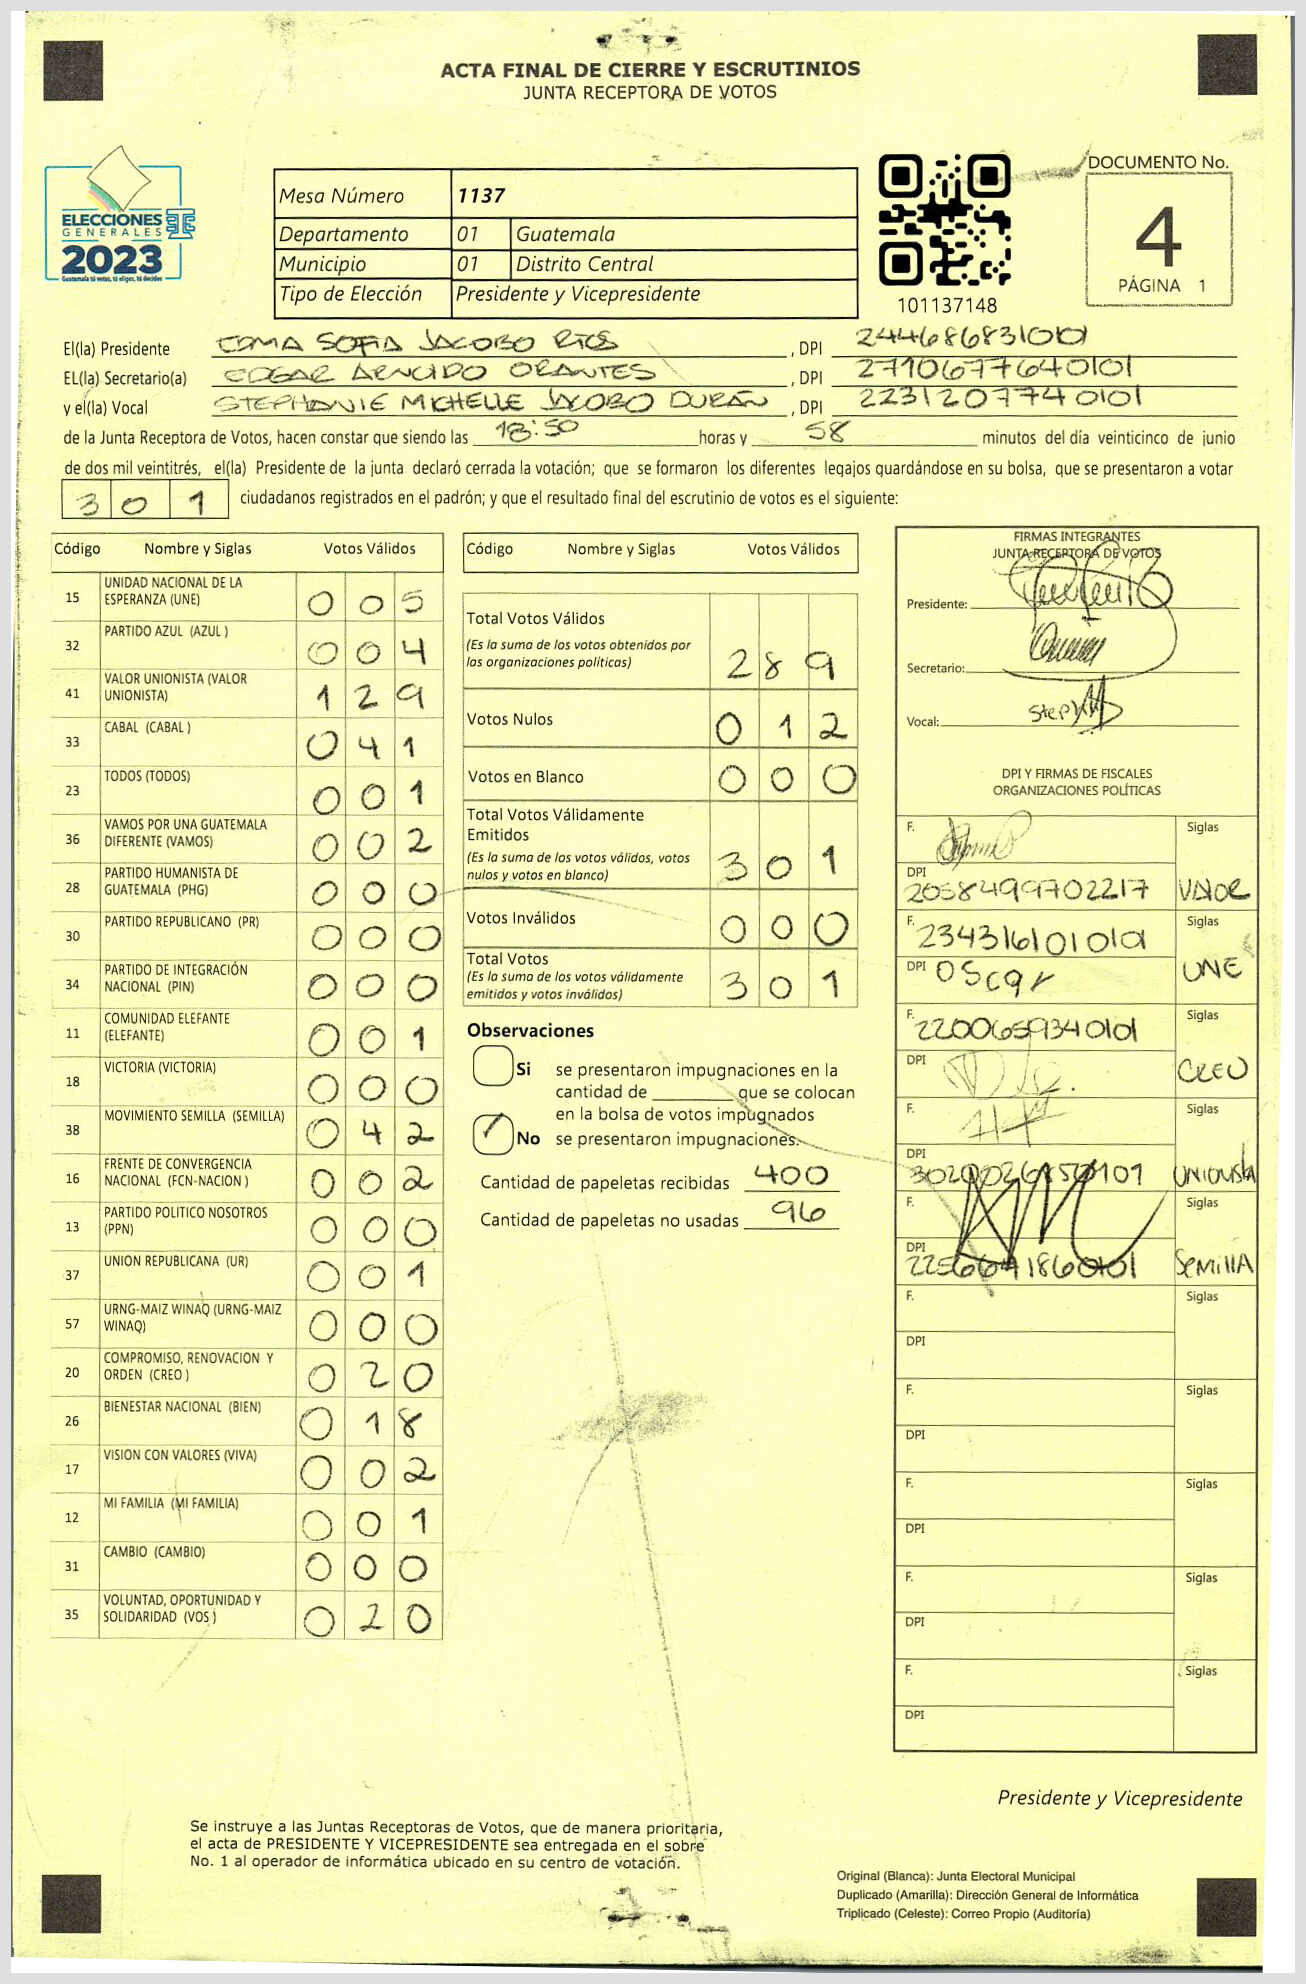 ACTA FINAL DE CIERRE Y ESCRUTINIOS
JUNTA RECEPTORA DE VOTOS
ELECCIONES
GENERALES
2023
Guatemala tú votas, tú eliges, tú decides
Mesa Número 1137
Departamento 01 Guatemala
Municipio 01 Distrito Central
Tipo de Elección Presidente y Vicepresidente
101137148
DOCUMENTO No.
4
PÁGINA 1
El(la) Presidente EDMA SOFIA JACOBO RIOS, DPI 2446868310101
EL(la) Secretario(a) EDGAR ARNOLDO ORANTES, DPI 2710677640101
y el(la) Vocal STEPHANIE MICHELLE JACOBO DURÁN, DPI 2231207740101
de la Junta Receptora de Votos, hacen constar que siendo las 18:50 horas y 58 minutos del día veinticinco de junio
de dos mil veintitrés, el(la) Presidente de la junta declaró cerrada la votación; que se formaron los diferentes legajos guardándose en su bolsa, que se presentaron a votar
301 ciudadanos registrados en el padrón; y que el resultado final del escrutinio de votos es el siguiente:
Código Nombre y Siglas Votos Válidos
15 UNIDAD NACIONAL DE LA ESPERANZA (UNE) 005
32 PARTIDO AZUL (AZUL ) 004
41 VALOR UNIONISTA (VALOR UNIONISTA) 129
33 CABAL (CABAL ) 041
23 TODOS (TODOS) 001
36 VAMOS POR UNA GUATEMALA DIFERENTE (VAMOS) 002
28 PARTIDO HUMANISTA DE GUATEMALA (PHG) 000
30 PARTIDO REPUBLICANO (PR) 000
34 PARTIDO DE INTEGRACIÓN NACIONAL (PIN) 000
11 COMUNIDAD ELEFANTE (ELEFANTE) 001
18 VICTORIA (VICTORIA) 000
38 MOVIMIENTO SEMILLA (SEMILLA) 042
16 FRENTE DE CONVERGENCIA NACIONAL (FCN-NACION ) 002
13 PARTIDO POLITICO NOSOTROS (PPN) 000
37 UNION REPUBLICANA (UR) 001
57 URNG-MAIZ WINAQ (URNG-MAIZ WINAQ) 000
20 COMPROMISO, RENOVACION Y ORDEN (CREO ) 020
26 BIENESTAR NACIONAL (BIEN) 018
17 VISION CON VALORES (VIVA) 002
12 MI FAMILIA (MI FAMILIA) 001
31 CAMBIO (CAMBIO) 000
35 VOLUNTAD, OPORTUNIDAD Y SOLIDARIDAD (VOS ) 020
Código Nombre y Siglas Votos Válidos
Total Votos Válidos 289
(Es la suma de los votos obtenidos por
las organizaciones políticas)
Votos Nulos 012
Votos en Blanco 000
Total Votos Válidamente
Emitidos 301
(Es la suma de los votos válidos, votos
nulos y votos en blanco)
Votos Inválidos 000
Total Votos 301
(Es la suma de los votos válidamente
emitidos y votos inválidos)
Observaciones
Si se presentaron impugnaciones en la
cantidad de ________ que se colocan
en la bolsa de votos impugnados
No se presentaron impugnaciones.
Cantidad de papeletas recibidas 400
Cantidad de papeletas no usadas 96
FIRMAS INTEGRANTES
JUNTA RECEPTORA DE VOTOS
Presidente:
Secretario:
Vocal:
DPI Y FIRMAS DE FISCALES
ORGANIZACIONES POLÍTICAS
F. Siglas
DPI 2058499702217 VALOR
F. 2343161010101 Siglas
DPI Oscar UNE
F. 2200659340101 Siglas
DPI CREO
F. Siglas
DPI UNIONISTA
F. Siglas
DPI SEMILLA
F. Siglas
DPI
F. Siglas
DPI
F. Siglas
DPI
F. Siglas
DPI
F. Siglas
DPI
Presidente y Vicepresidente
Se instruye a las Juntas Receptoras de Votos, que de manera prioritaria,
el acta de PRESIDENTE Y VICEPRESIDENTE sea entregada en el sobre
No. 1 al operador de informática ubicado en su centro de votación.
Original (Blanca): Junta Electoral Municipal
Duplicado (Amarilla): Dirección General de Informática
Triplicado (Celeste): Correo Propio (Auditoría)